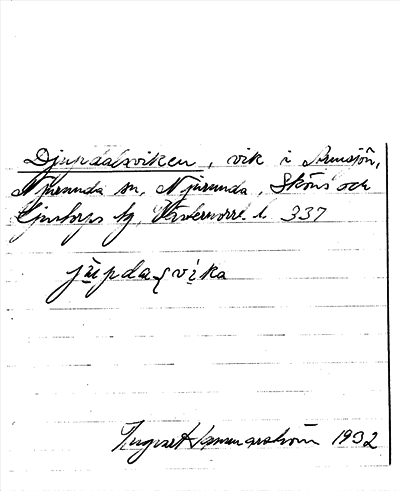 Djupdalsviken, vik i Armsjön,
Njurunda sn, Njurunda, Sköns och
Ljustorps tg, Västernorrl. l 337
jüpdaʃvika
Ingvar Hammarström 1932